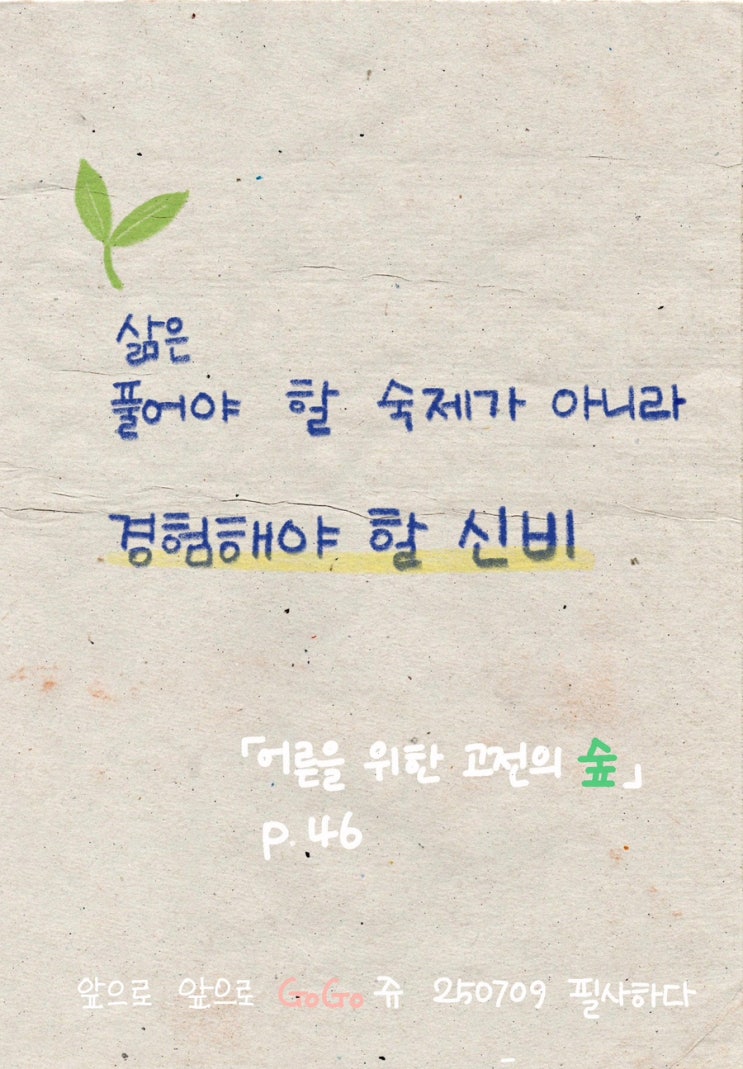 삶은
풀어야 할 숙제가 아니라
경험해야 할 신비
「어른을 위한 고전의 숲」
p.46
앞으로 앞으로 GoGo 쥬 250709 필사하다